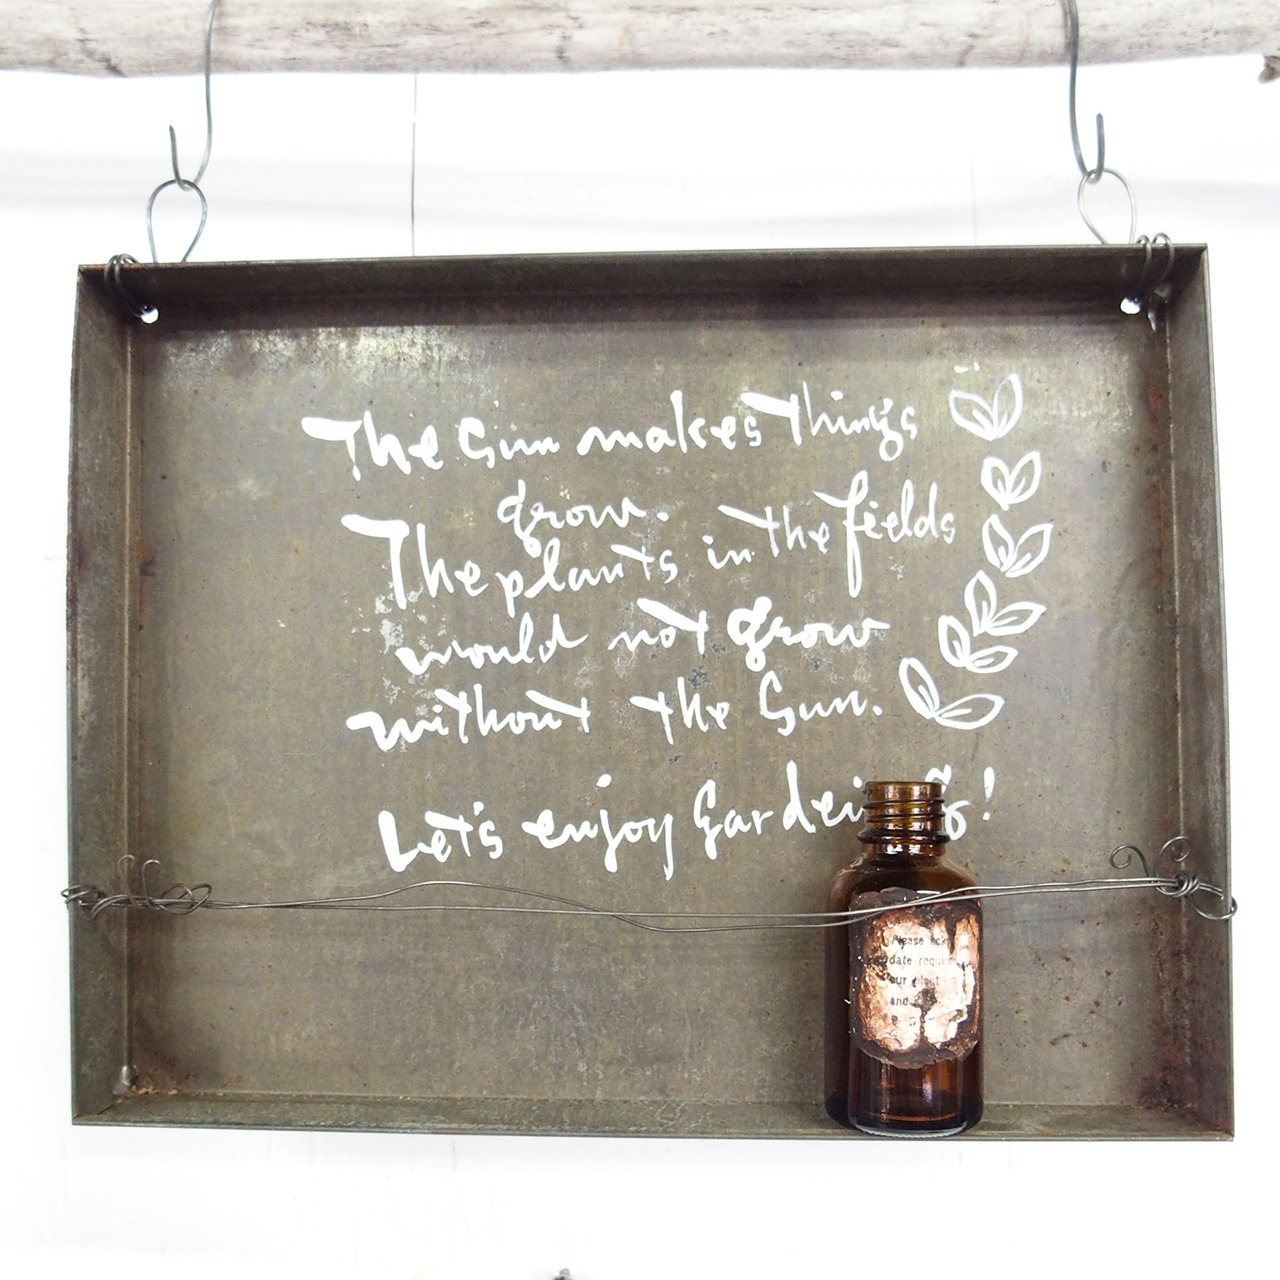 The Sun makes things
grow.
The plants in the fields
would not grow
without the Sun.
Let's enjoy
Please
date
our plant
and